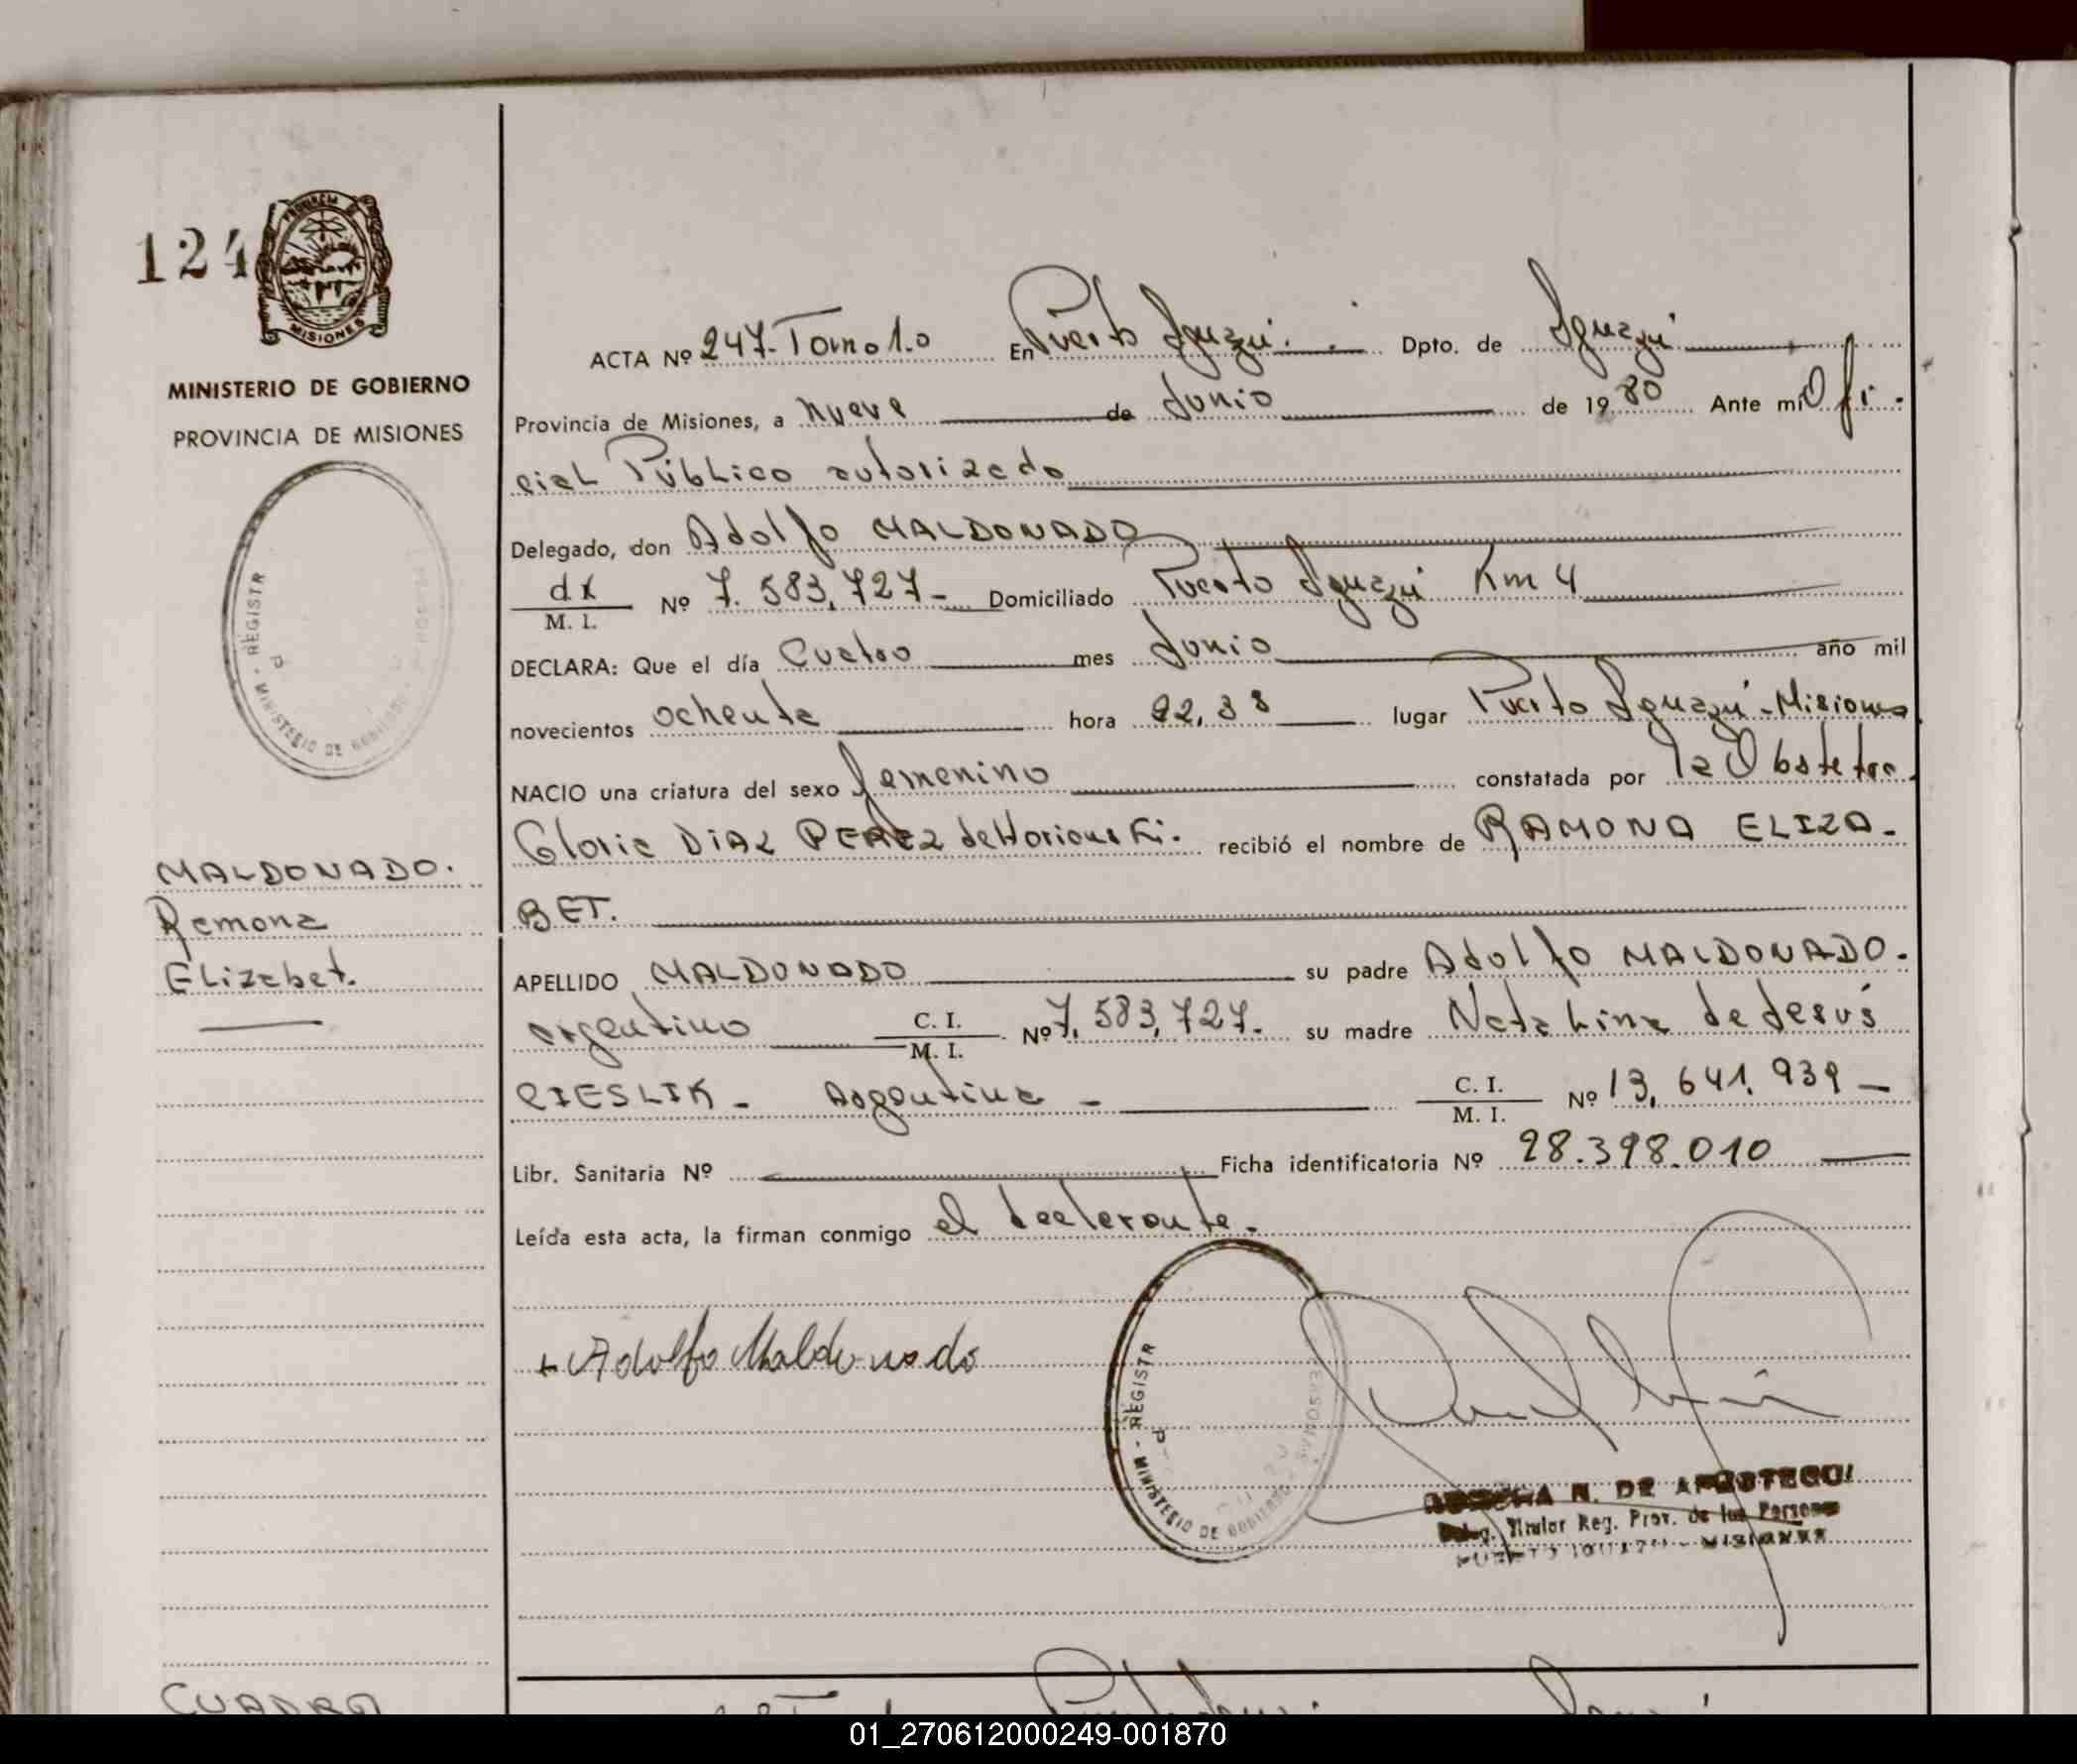 124
PROVINCIA DE
MISIONES
MINISTERIO DE GOBIERNO
PROVINCIA DE MISIONES
REGISTR
MINISTERIO DE GOBIERNO
MALDONADO.
Ramona
Elizabet.
ACTA Nº 247-Tomo 1.o En Puerto Iguazú. Dpto. de Iguazú
Provincia de Misiones, a nueve de Junio de 1980 Ante mi Ofi-
cial Público autorizado
Delegado, don Adolfo MALDONADO
M. I. Nº 7.583,727- Domiciliado Puerto Iguazú Km 4
DECLARA: Que el día Cuatro mes Junio año mil
novecientos ochenta hora lugar Puerto Iguazú-Misiones
NACIO una criatura del sexo femenino constatada por la Obstetra.
Gloria DIAZ PEREZ recibió el nombre de RAMONA ELIZA-
BET.
APELLIDO MALDONADO su padre Adolfo MALDONADO.
argentino C. I. M. I. Nº 7.583,727. su madre Natalina de Jesús
CIESLIK - Argentina - C. I. M. I. Nº 13,641.939-
Libr. Sanitaria Nº Ficha identificatoria Nº 28.398.010
Leída esta acta, la firman conmigo el declarante.
+ Adolfo Maldonado
REGISTR
MINISTERIO DE GOBIERNO
N. DE AROSTEGUI
Deleg. Titular Reg. Prov. de las Personas
PUERTO IGUAZU - MISIONES
CUADRO
01_270612000249-001870